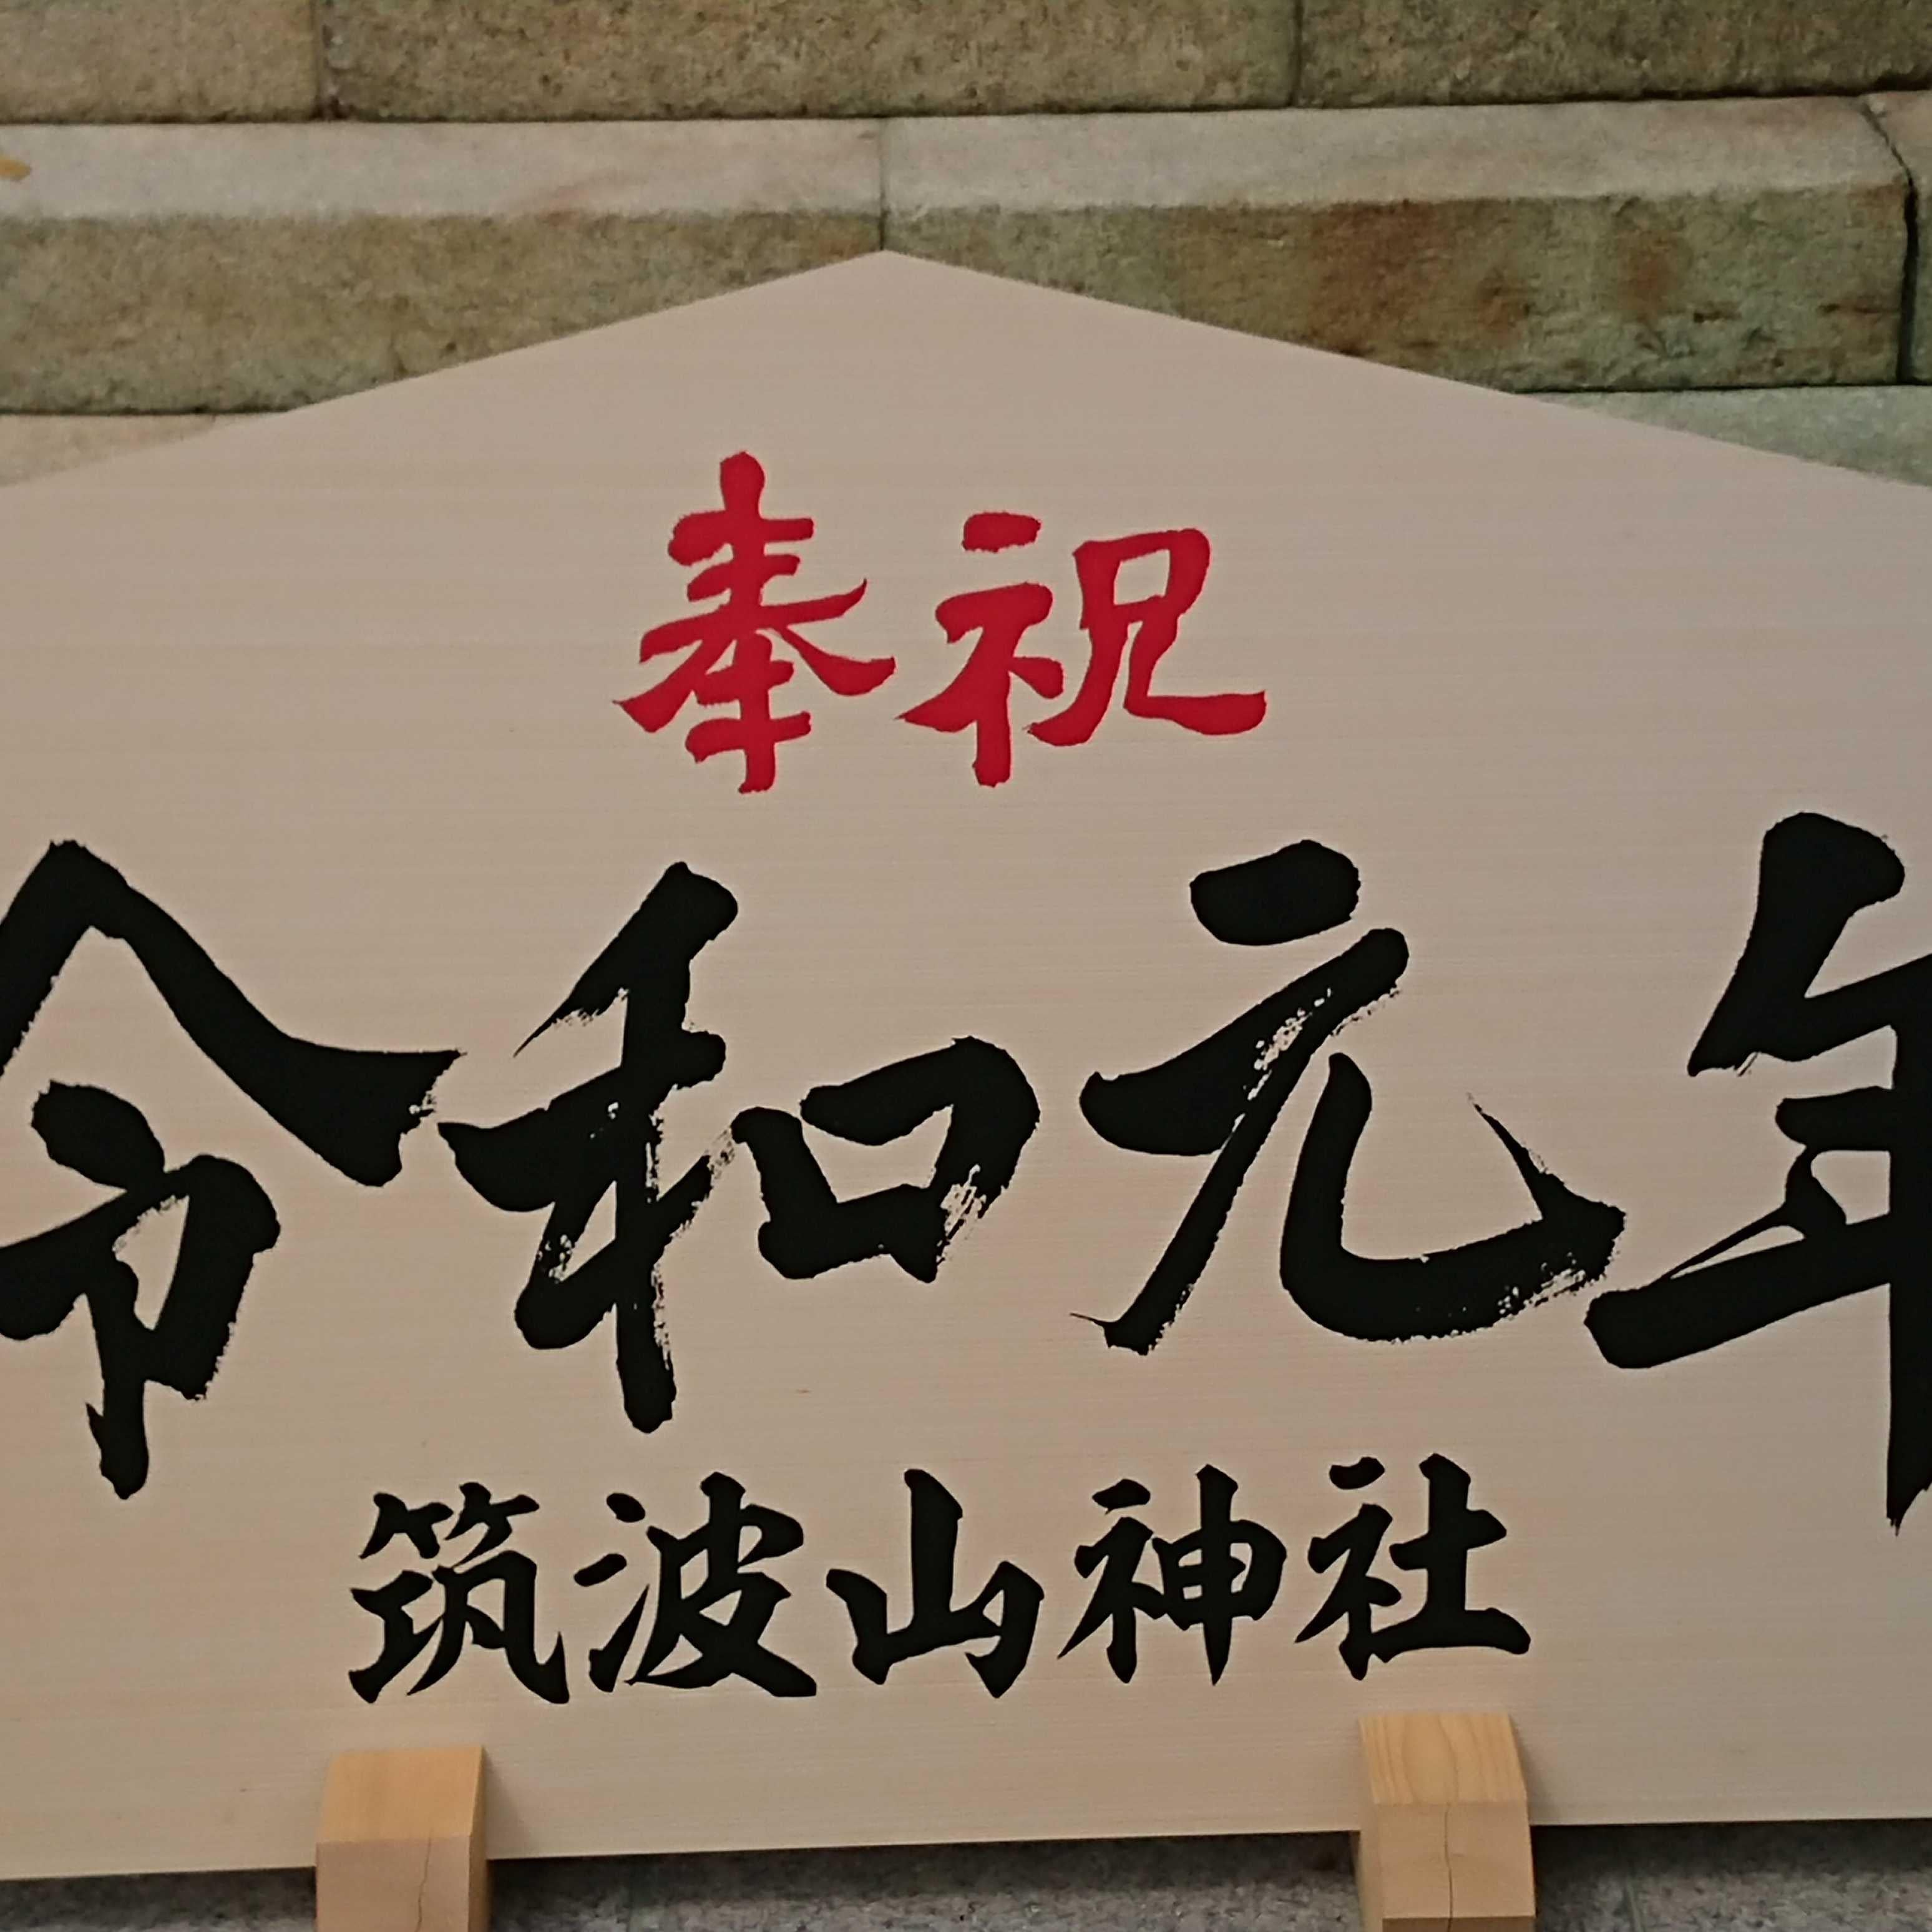 奉祝
令和元年
筑波山神社